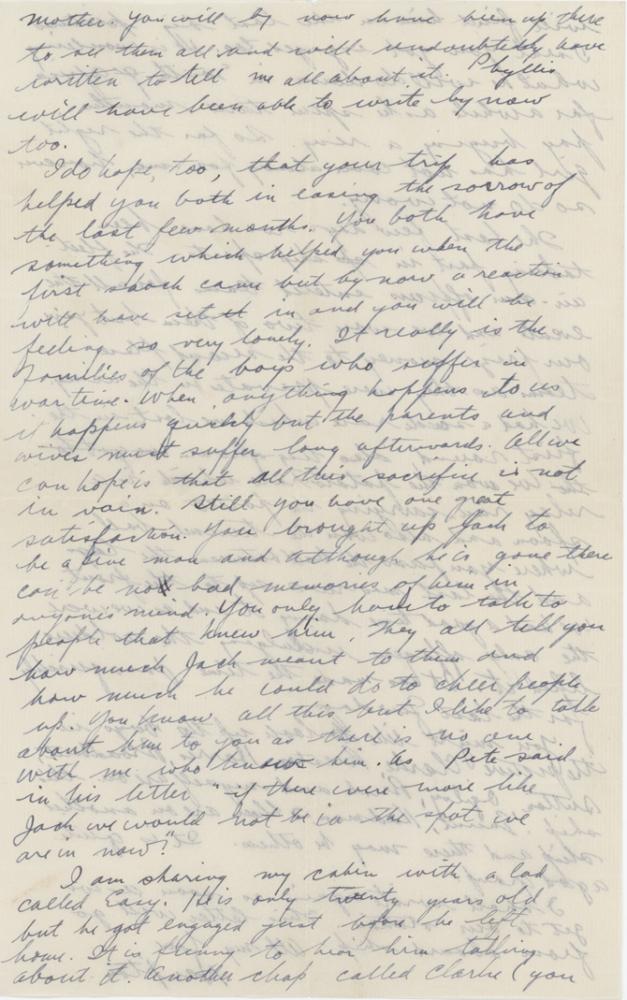 mother. You will by now have been up there
to see them all and will undoubtedly have
written to tell me all about it. Phyllis
will have been able to write by now
too.
I do hope, too, that your trip has
helped you both in easing the sorrow of
the last few months. You both have
something which helped you when the
first shock came but by now a reaction
will have set in and you will be
feeling so very lonely. It really is the
families of the boys who suffer in
war time. When anything happens to us
it happens quickly but the parents and
wives must suffer long afterwards. All we
can hope is that all this sacrifice is not
in vain. Still you have one great
satisfaction. You brought up Jack to
be a fine man and although he is gone there
can be no bad memories of him in
anyone's mind. You only have to talk to
people that knew him. They all tell you
how much Jack meant to them and
how much he could do to cheer people
up. You know all this but I like to talk
about him to you as there is no one
with me who knows him. As Pete said
in his letter "if there were more like
Jack we would not be in the spot we
are in now".
I am sharing my cabin with a lad
called Easy. He is only twenty years old
but he got engaged just before he left
home. It is funny to hear him talking
about it. Another chap called Clarke (you